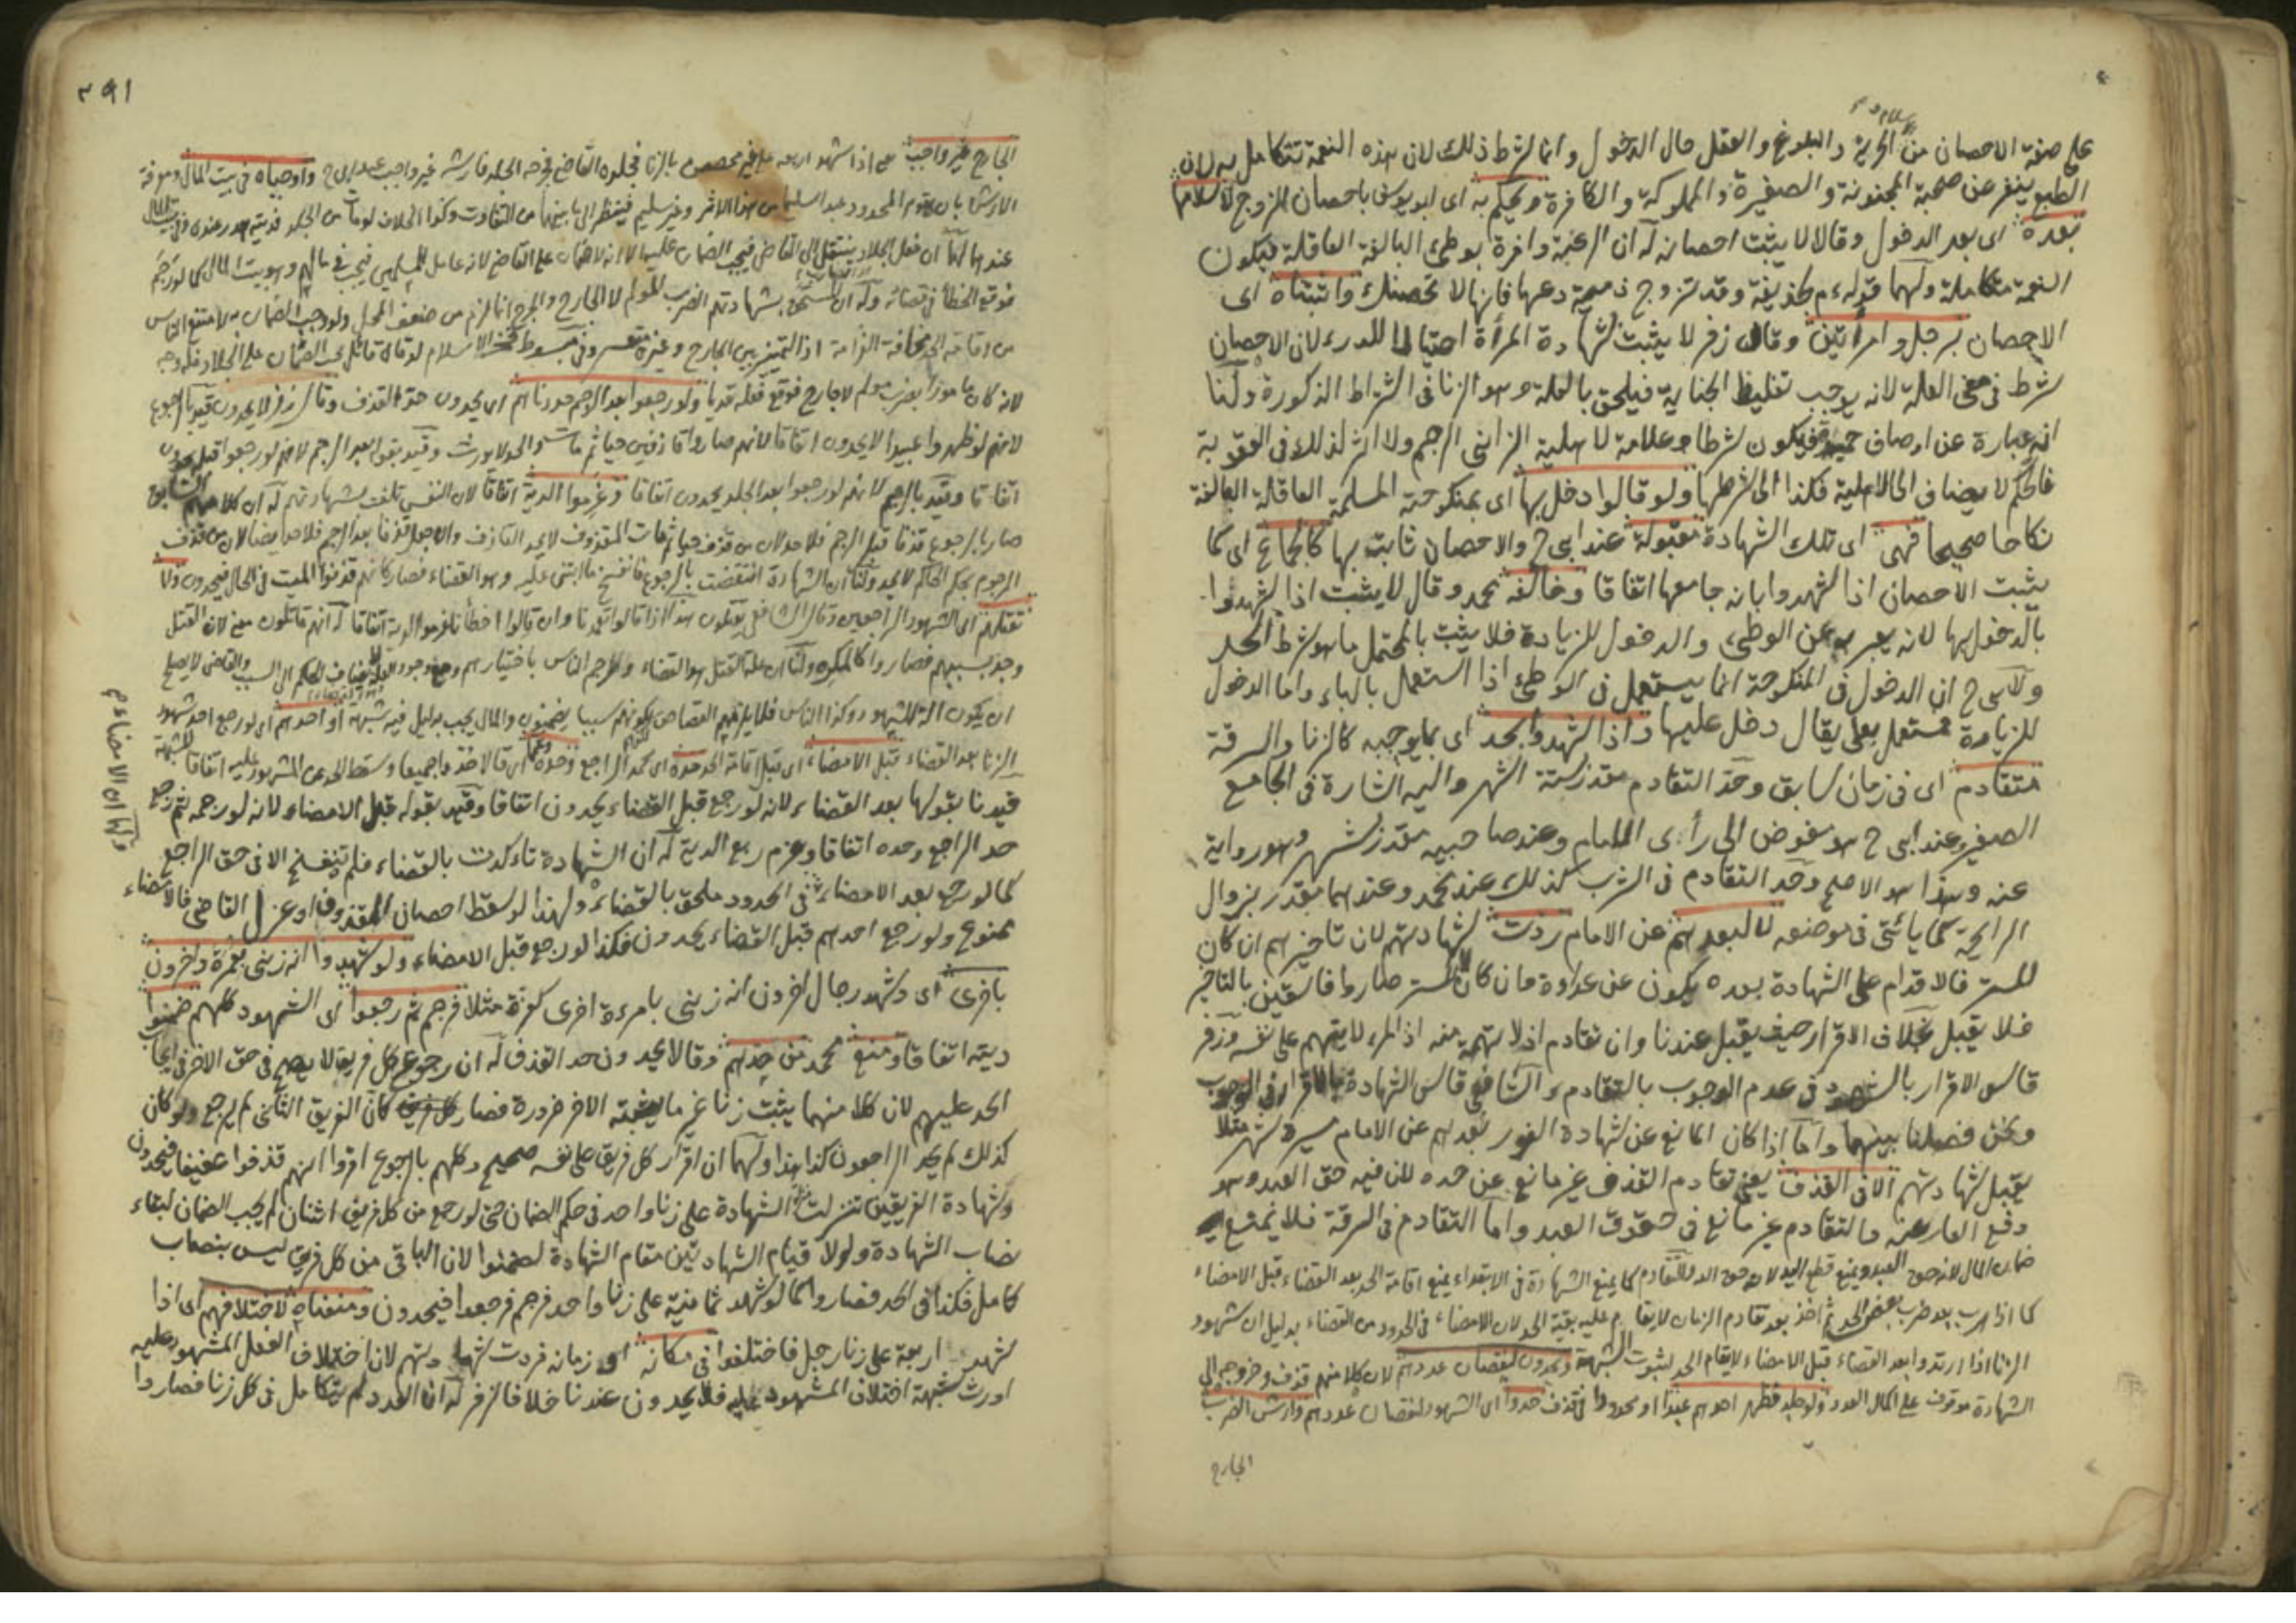 على صفة الاحصان من الحرية والبلوغ والعقل حال الدخول وانما شرط ذلك لان بهذه النعمة تتكامل به لان
الطبع ينفر عن صحبة المجنونة والصغيرة والمملوكة والكافرة ويحكم به اى ابو يوسف باحصان الزوج لاسلامها
بعده اى بعد الدخول وقالا لا يثبت احصانه له ان الرغبة وافرة بوطئ البالغة العاقلة فيكون
النعمة متكاملة ولهما قوله م لحذيفة وقد تزوج ذمية دعها فانها لا تحصنك واثبتناه اى
الاحصان برجل وامرأتين وقال زفر لا يثبت شهادة المرأة احتيالا للدرء لان الاحصان
شرط فى معنى العلة لانه يوجب تغليظ الجناية فيلحق بالعلة وهو الزنا فى اشتراط الذكورة ولنا
انه عبارة عن اوصاف حميدة فيكون شرطا وعلامة لاهلية الزانى الرجم ولا اثر لذلك فى العقوبة
فالحكم لا يضاف الى الاهلية فكذا الى شرطها ولو قالوا دخل بها اى بمنكوحته المسلمة العاقلة البالغة
نكاحا صحيحا فهى اى تلك الشهادة مقبولة عند ابى ح والاحصان ثابت بها كالجماع اى كما
يثبت الاحصان اذا شهدوا بانه جامعها اتفاقا وخالفه محمد وقال لا يثبت اذا شهدوا
بالدخول بها لانه يعبر به عن الوطئ والدخول للزيادة فلا يثبت بالمحتمل ما هو شرط الحد
ولابى ح ان الدخول فى المنكوحة انما يستعمل فى الوطئ اذا استعمل بالباء واما الدخول
للزيارة مستعمل بعلى يقال دخل عليها واذا شهدوا بحد اى بما يوجبه كالزنا والسرقة
متقادم اى فى زمان سابق وحد التقادم مقدر بستة اشهر واليه اشارة فى الجامع
الصغير وعند ابى ح هو مفوض الى رأى الامام وعند صاحبيه مقدر بشهر وهو رواية
عنه وهذا هو الاصح وحد التقادم فى الشرب كذلك عند محمد وعندهما مقدر بزوال
الرايحة كما يأتى فى موضعه لا لبعدهم عن الامام ردت شهادتهم لان تاخيرهم ان كان
للستر فالاقدام على الشهادة بعده يكون عن عداوة وان كان لا لستر صاروا فاسقين بالتاخير
فلا يقبل بخلاف الاقرار حيث يقبل عندنا وان تقادم اذ لا تهمة منه اذ المرء لا يتهم على نفسه وزفر
قاس الاقرار بالشهود فى عدم الوجوب بالتقادم والشافعى قاس الشهادة بالاقرار فى الوجوب
ونحن فصلنا بينهما واما اذا كان المانع عن شهادة الفور بعدهم عن الامام مسيرة شهر مثلا
يقبل شهادتهم الا فى القذف يعنى تقادم القذف غير مانع عن حده لان فيه حق العبد وهو
دفع العار عنه والتقادم غير مانع فى حقوق العبد واما التقادم فى السرقة فلا يمنع
ضمان المال لانه حق العبد ويمنع قطع اليد لانه حق الله فالتقادم كما يمنع الشهادة فى الابتداء يمنع اقامة الحد بعد القضاء قبل الامضاء
كما اذا هرب بعد ضرب بعض الحد ثم اخذ بعد تقادم الزمان لا يقام عليه بقية الحد لان الامضاء فى الحدود من القضاء بدليل ان شهود
الزنا اذا ارتدوا بعد القضاء قبل الامضاء لا يقام الحد لثبوت الشبهة ويحدون لنقصان عددهم لان كلا منهم قذف وخروجه الى
الشهادة موقوف على كمال العدد ولو جلد فظهر احدهم عبدا او محدودا فى قذف حدوا اى الشهود لنقصان عددهم وارش الضرب
الجارح
٣٩١
الجارح غير واجب يعنى اذا شهد اربعة على غير محصن بالزنا فجلده القاضى فجرحه الجلد فارشه غير واجب عند ابى ح واوجباه فى بيت المال ومعرفة
الارش بان يقوم المحدود عبدا سليما من هذا الاثر وغير سليم فينظر الى ما بينهما من التفاوت وكذا الخلاف لو مات من الجلد فديته هدر عنده وفى بيت المال
عندهما لهما ان فعل الجلاد ينتقل الى القاضى فيجب الضمان عليه الا انه لا ضمان على القاضى لانه عامل للمسلمين فيجب فى مالهم وهو بيت المال كما لو رجم
فوقع الخطأ فى قضائه وله ان المستحق بشهادتهم الضرب المؤلم لا الجارح والجرح انما لزم من ضعف المحل ولو وجب الضمان به لامتنع الناس
من اقامة الحد مخافة الغرامة اذ التميز بين الجارح وغيره متعسر وفى مبسوط فخر الاسلام لو قال قائل يجب الضمان على الجلاد فله وجه
لانه كان مامورا بضرب مؤلم لا جارح فوقع فعله تعديا ولو رجعوا بعد الرجم حددناهم اى يحدون حد القذف وقال زفر لا يحدون قيد بالرجوع
لانهم لو ظهروا عبيدا لا يحدون اتفاقا لانهم صاروا قاذفين حيا ثم مات والحد لا يورث وقيد بقوله بعد الرجم لانهم لو رجعوا قبله يحدون
اتفاقا وقيد بالرجم لانهم لو رجعوا بعد الجلد يحدون اتفاقا وغرموا الدية اتفاقا لان النفس تلفت بشهادتهم له ان كلامهم السابق
صار بالرجوع قذفا قبل الرجم فلا حد لان من قذف حيا ثم مات المقذوف لا يحد القاذف وان جعل قذفا بعد الرجم فلا حد ايضا لان من قذف
المرجوم بحكم الحاكم لا يحد ولنا ان الشهادة انتقضت بالرجوع فانفسخ ما ابتنى عليه وهو القضاء فصار كانهم قذفوا الميت فى الحال فيحدون ولا
نقتلهم اى الشهود الراجعين وقال الشافعى يقتلون هذا اذا قالوا تعمدنا وان قالوا اخطأنا غرموا الدية اتفاقا له انهم قاتلون معنى لان القتل
وجد بسببهم فصاروا كالمكره ولنا ان علة القتل هو القضاء والرجم الناس باختيارهم ومع وجود العلة لا يضاف الحكم الى السبب والقاضى لا يصلح
ان يكون الة للشهود وكذا الناس فلا يلزمهم القصاص بكونهم سببا يضمنون والمال يجب بدليل فيه شبهة او احدهم اى لو رجع احد شهود
الزنا بعد القضاء قبل الامضاء اى قبل اقامة الحد حدوه اى محمد الراجع وحده وهما اى قالا حدوا جميعا وسقط الحد عن المشهود عليه اتفاقا للشبهة
قيدنا بقولها بعد القضاء لانه لو رجع قبل القضاء يحدون اتفاقا وقيد بقوله قبل الامضاء لانه لو رجمه ثم رجع
حد الراجع وحده اتفاقا وغرم ربع الدية له ان الشهادة تاكدت بالقضاء فلم تنفسخ الا فى حق الراجع
كما لو رجع بعد الامضاء فى الحدود ملحق بالقضاء ولهذا لو سقط احصان المقذوف او عزل القاضى فالامضاء
ممنوع ولو رجع احدهم قبل القضاء يحدون فكذا لو رجع قبل الامضاء ولو شهدوا انه زنى بعمرة واخرون
باخرى اى وشهد رجال اخرون انه زنى بامرءة اخرى كعزة مثلا فرجم ثم رجعوا اى الشهود كلهم ضمنوا
ديته اتفاقا ومنع محمد من حدهم وقالا يحدون حد القذف له ان رجوع كل فريق لا يصح فى حق الاخر فى ايجاب
الحد عليهم لان كلا منهما يثبت زنا غير ما يثبته الاخر ضرورة فصار كان الفريق الثانى لم يرجع ولو كان
كذلك لم يحد الراجعون كذا هذا ولهما ان اقرار كل فريق على نفسه صحيح وكلهم بالرجوع اقروا انهم قذفوا عفيفا فيحدون
وشهادة الفريقين تنزلت الشهادة على زنا واحد فى حكم الضمان حتى لو رجع من كل فريق اثنان لم يجب الضمان لبقاء
نصاب الشهادة ولولا قيام الشهادتين مقام الشهادة لضمنوا لان الباقى من كل فريق ليس بنصاب
كامل فكذا فى الحد فصاروا كما لو شهد ثمانية على زنا واحد فرجم فرجعوا فيحدون ومنعناه لاختلافهم اى اذا
شهد اربعة على زنا رجل فاختلفوا فى مكانه او زمانه فردت شهادتهم لان اختلاف الفعل المشهود عليه
اورث شبهة اختلاف المشهود عليه فلا يحدون عندنا خلافا لزفر له ان العدد لم يتكامل فى كل زنا فصاروا
ولهما ان الامضاء م